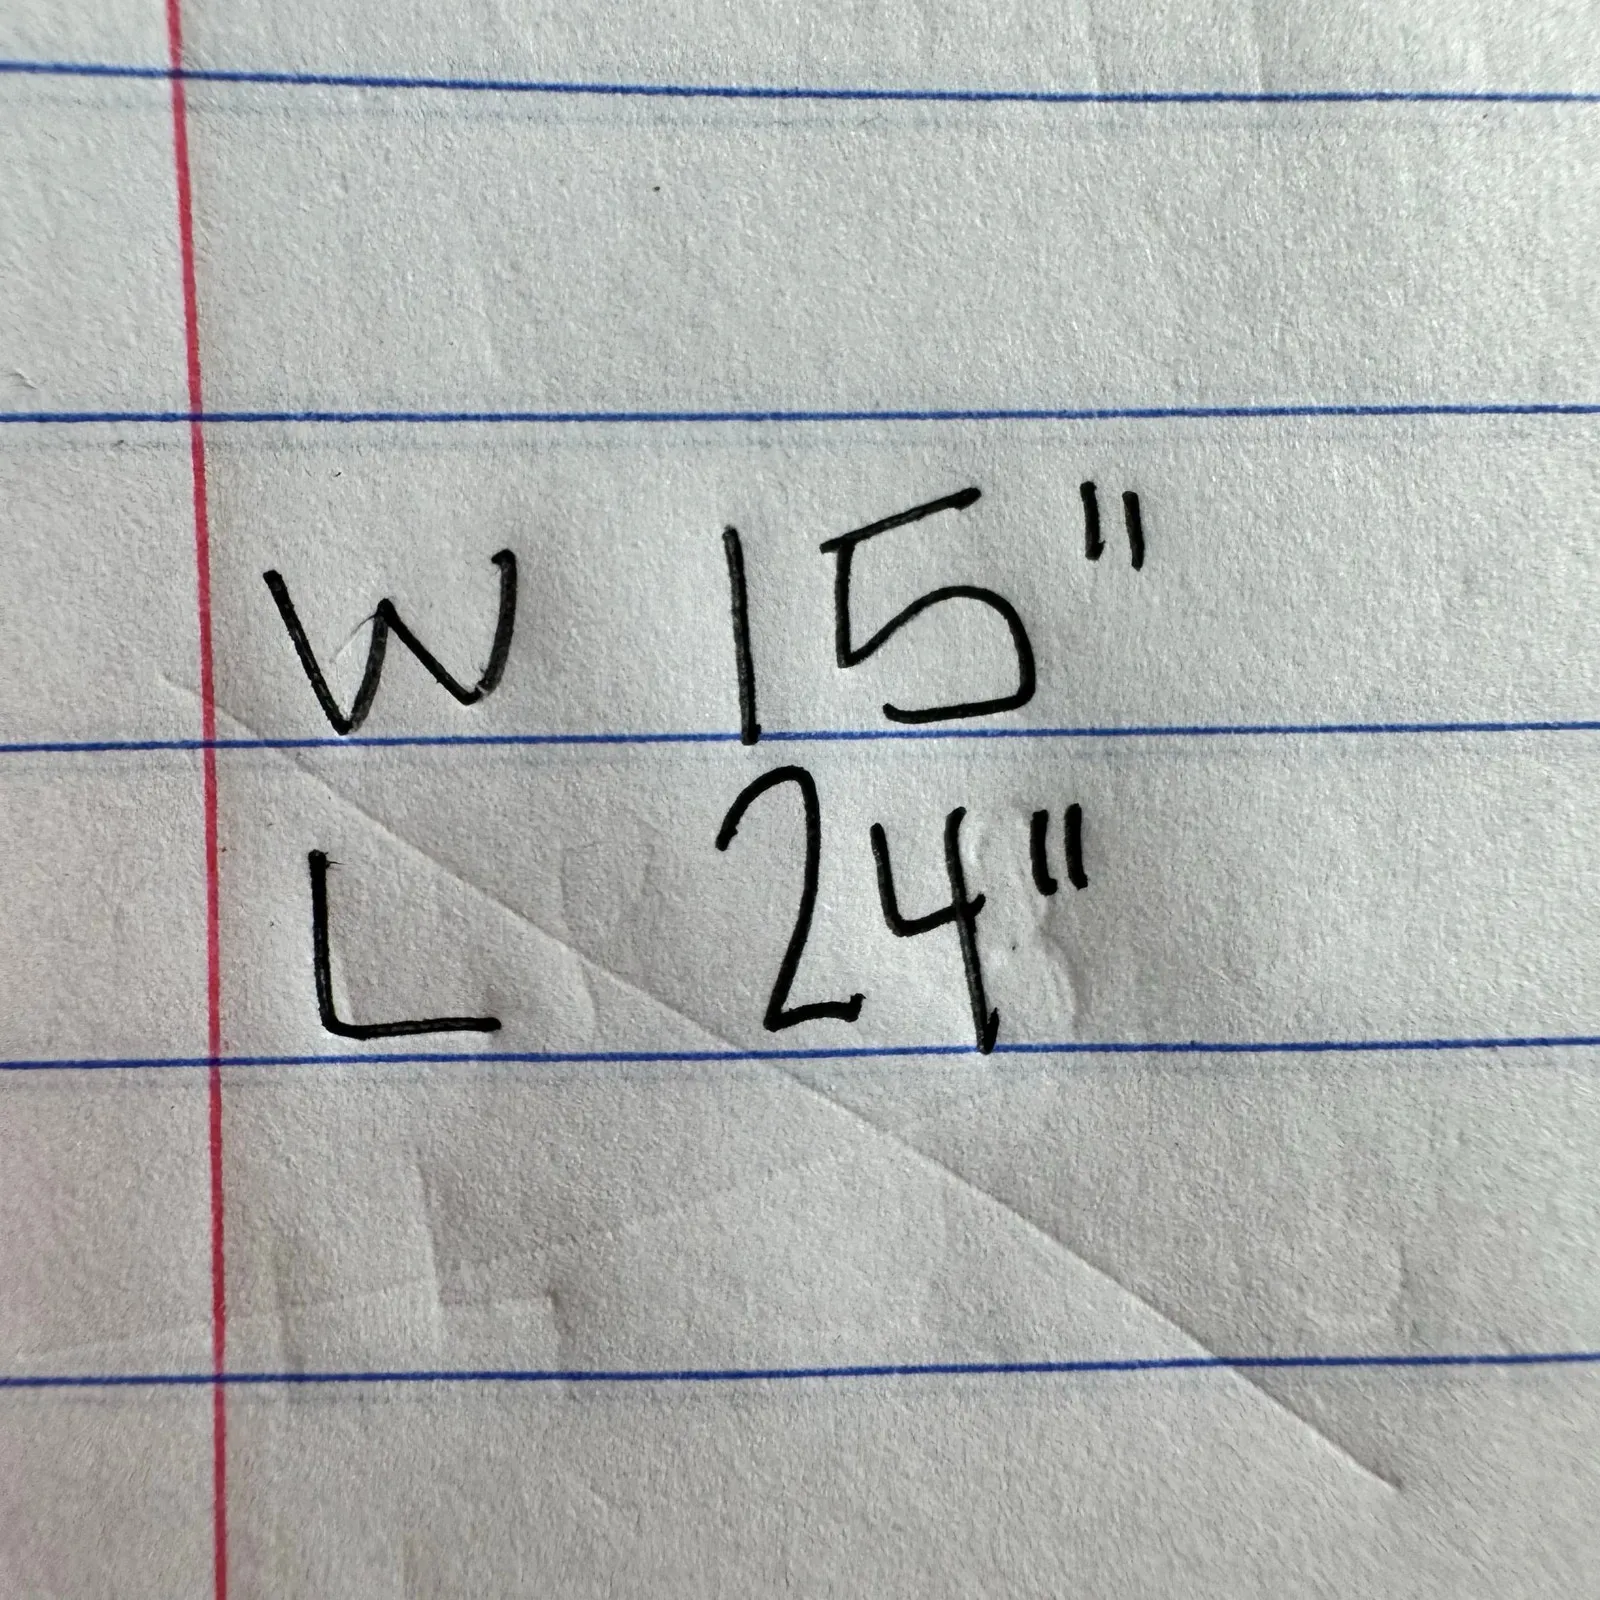 W 15"
L 24"